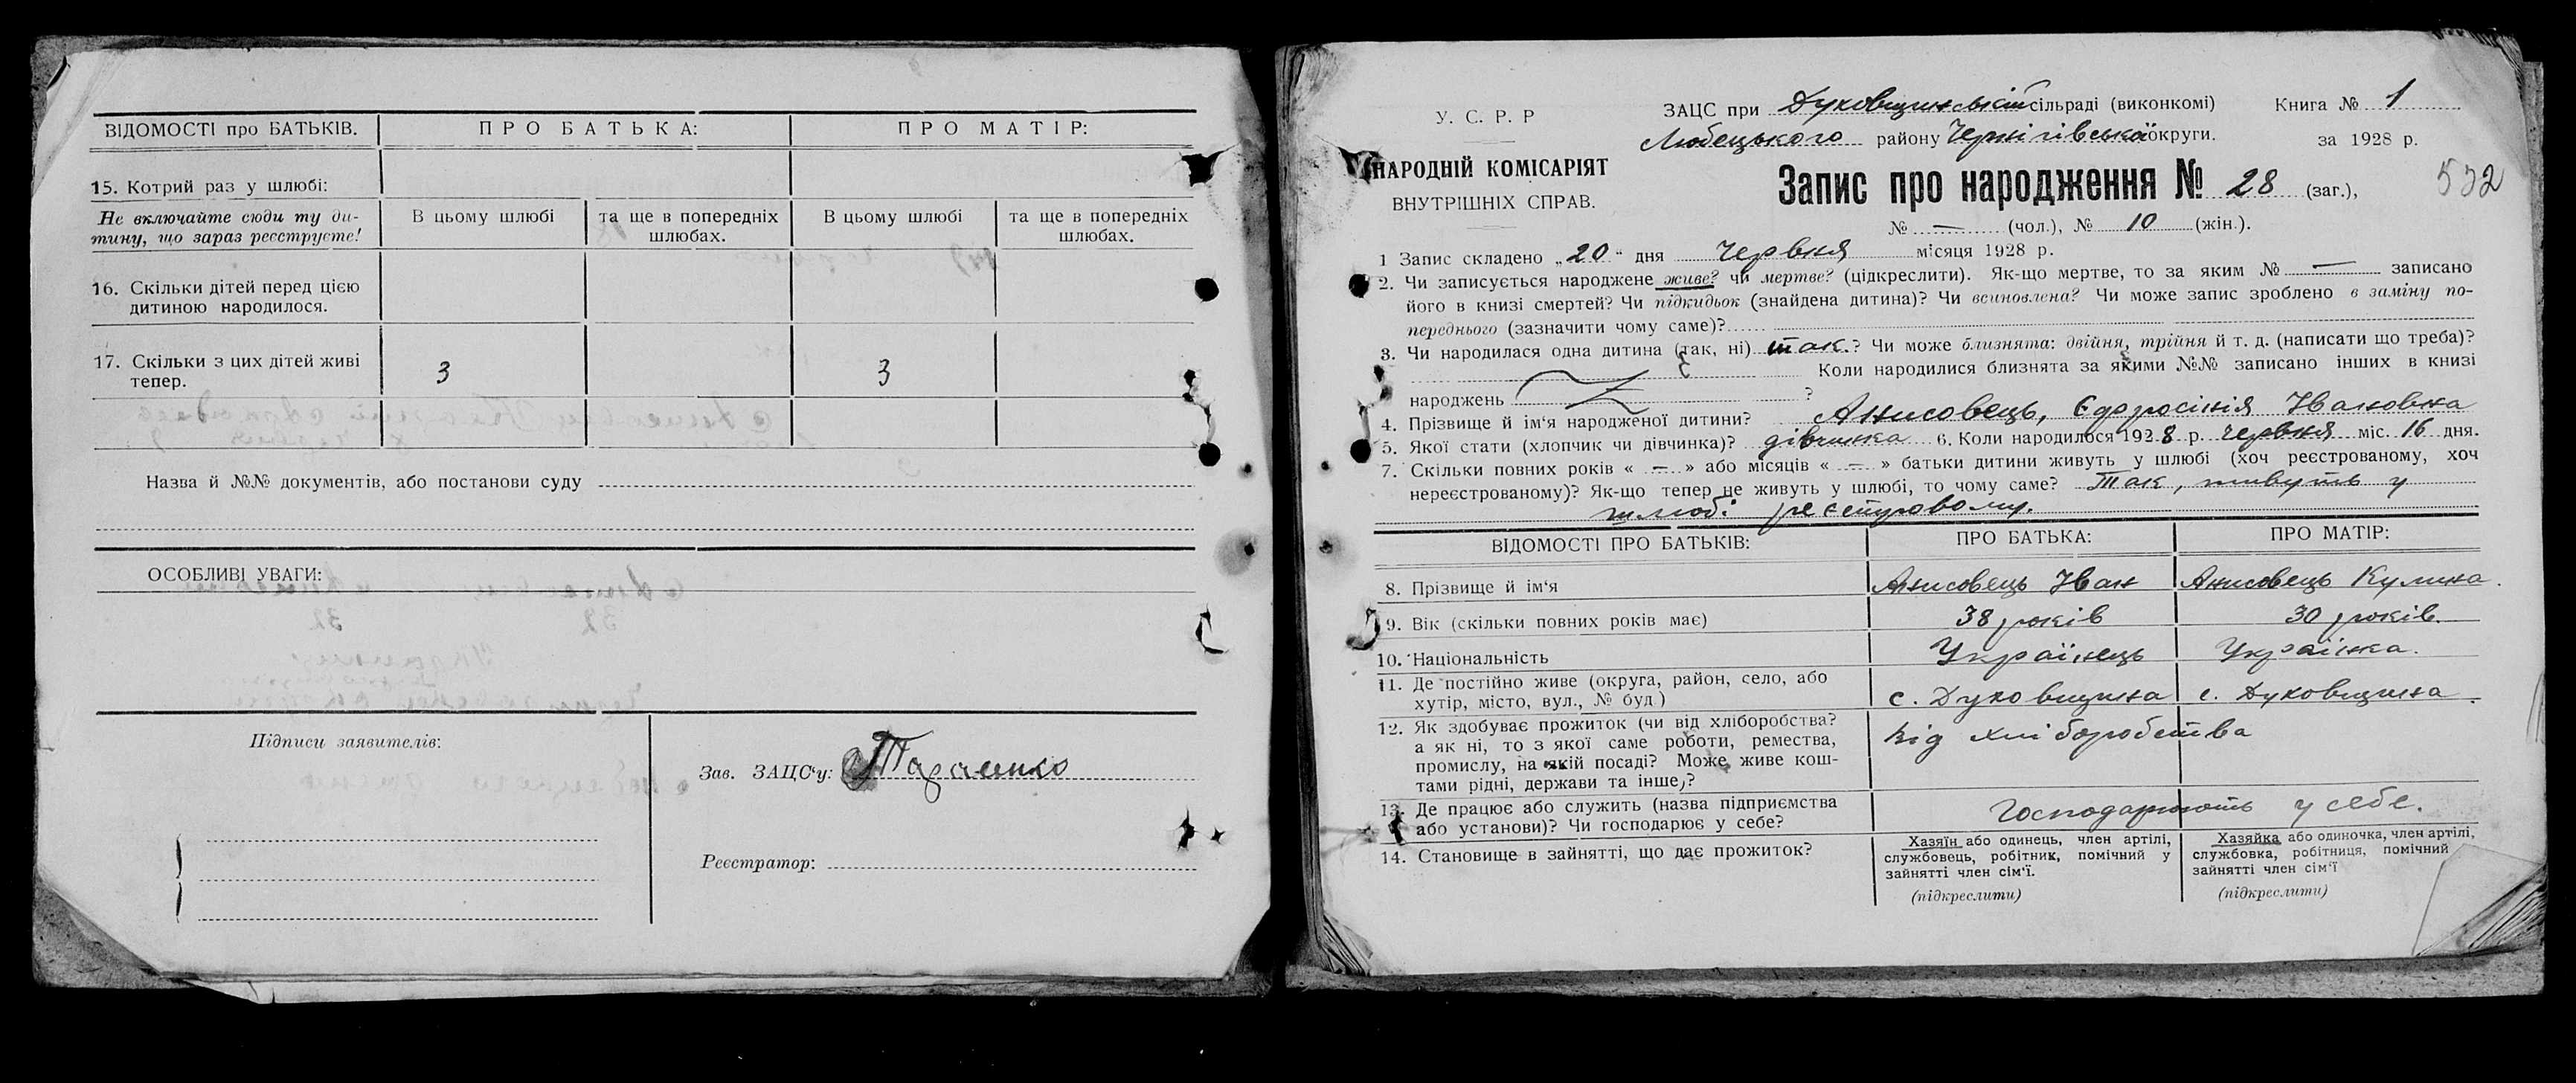 ВІДОМОСТІ про БАТЬКІВ. ПРО БАТЬКА: ПРО МАТІР:
15. Котрий раз у шлюбі:
Не включайте сюди ту ди-
тину, що зараз реєструєте!
В цьому шлюбі та ще в попередніх шлюбах. В цьому шлюбі та ще в попередніх шлюбах.
16. Скільки дітей перед цією
дитиною народилося.
17. Скільки з цих дітей живі
тепер. 3 3
Назва й №№ документів, або постанови суду
ОСОБЛИВІ УВАГИ:
Підписи заявителів:
Зав. ЗАЦС'у: Тарасенко
Реєстратор:
У. С. Р. Р
НАРОДНІЙ КОМІСАРІЯТ
ВНУТРІШНІХ СПРАВ.
ЗАЦС при Духовщинській сільраді (виконкомі) Книга № 1
Любецького району Чернігівської округи. за 1928 р.
Запис про народження № 28 (заг.), 532
№ — (чол.), № 10 (жін.).
1 Запис складено „20" дня Червня місяця 1928 р.
2. Чи записується народжене живе? чи мертве? (підкреслити). Як-що мертве, то за яким № — записано
його в книзі смертей? Чи підкидьок (знайдена дитина)? Чи всиновлена? Чи може запис зроблено в заміну по-
переднього (зазначити чому саме)?
3. Чи народилася одна дитина (так, ні) так.? Чи може близнята: двійня, трійня й т. д. (написати що треба)?
Коли народилися близнята за якими №№ записано інших в книзі
народжень ?
4. Прізвище й ім'я народженої дитини? Анисовець, Єфросінія Івановна
5. Якої стати (хлопчик чи дівчинка)? дівчинка 6. Коли народилося 1928 р. червня міс. 16 дня.
7. Скільки повних років « — » або місяців « — » батьки дитини живуть у шлюбі (хоч реєстрованому, хоч
нереєстрованому)? Як-що тепер не живуть у шлюбі, то чому саме? Так, живуть у
шлюбі реєстровому.
ВІДОМОСТІ ПРО БАТЬКІВ: ПРО БАТЬКА: ПРО МАТІР:
8. Прізвище й ім'я Анисовець Іван Анисовець Кулина.
9. Вік (скільки повних років має) 38 років 30 років.
10. Національність Українець Українка.
11. Де постійно живе (округа, район, село, або
хутір, місто, вул., № буд) с. Духовщина с. Духовщина.
12. Як здобуває прожиток (чи від хліборобства?
а як ні, то з якої саме роботи, ремества,
промислу, на якій посаді? Може живе кош-
тами рідні, держави та інше,? Від хліборобства
13. Де працює або служить (назва підприємства
або установи)? Чи господарює у себе? Господарюють у себе.
14. Становище в зайнятті, що дає прожиток?
Хазяїн або одинець, член артілі,
службовець, робітник, помічний у
зайнятті член сім'ї.
(підкреслити)
Хазяйка або одиночка, член артілі,
службовка, робітниця, помічний
зайнятті член сім'ї
(підкреслити)